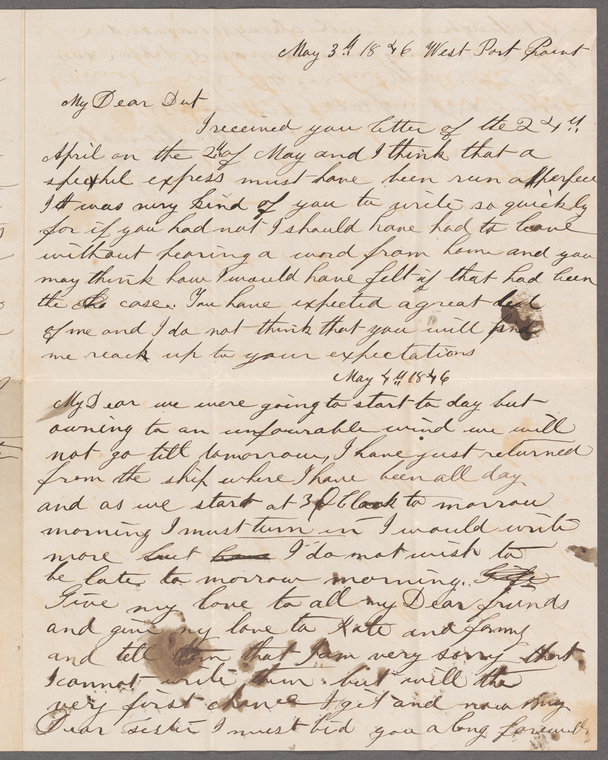 May 3d 1846 West Port Point
My Dear Dut
I received you letter of the 24th
April on the 2d of May and I think that a
speshel express must have been run a perfect
It was very kind of you to write so quickly
for if you had not I should have had to leave
without hearing a word from home and you
may think how I would have felt if that had been
the case. You have expected a great deal
of me and I do not think that you will find
me reack up to your expectations
May 4th 1846
My Dear we were going to start to day but
owning to an unfavourable wind we will
not go till tomorrow, I have just returned
from the ship where I have been all day
and as we start at 3 O Clock to morrow
morning I must turn in I would write
more but I do not wish to
be late to morrow morning.
Give my love to all my Dear friends
and give my love to Kate and fanny
and tell them that I am very sorry that
I cannot write them but will the
very first chance I git and now my
Dear sister I must bid you a long farewell